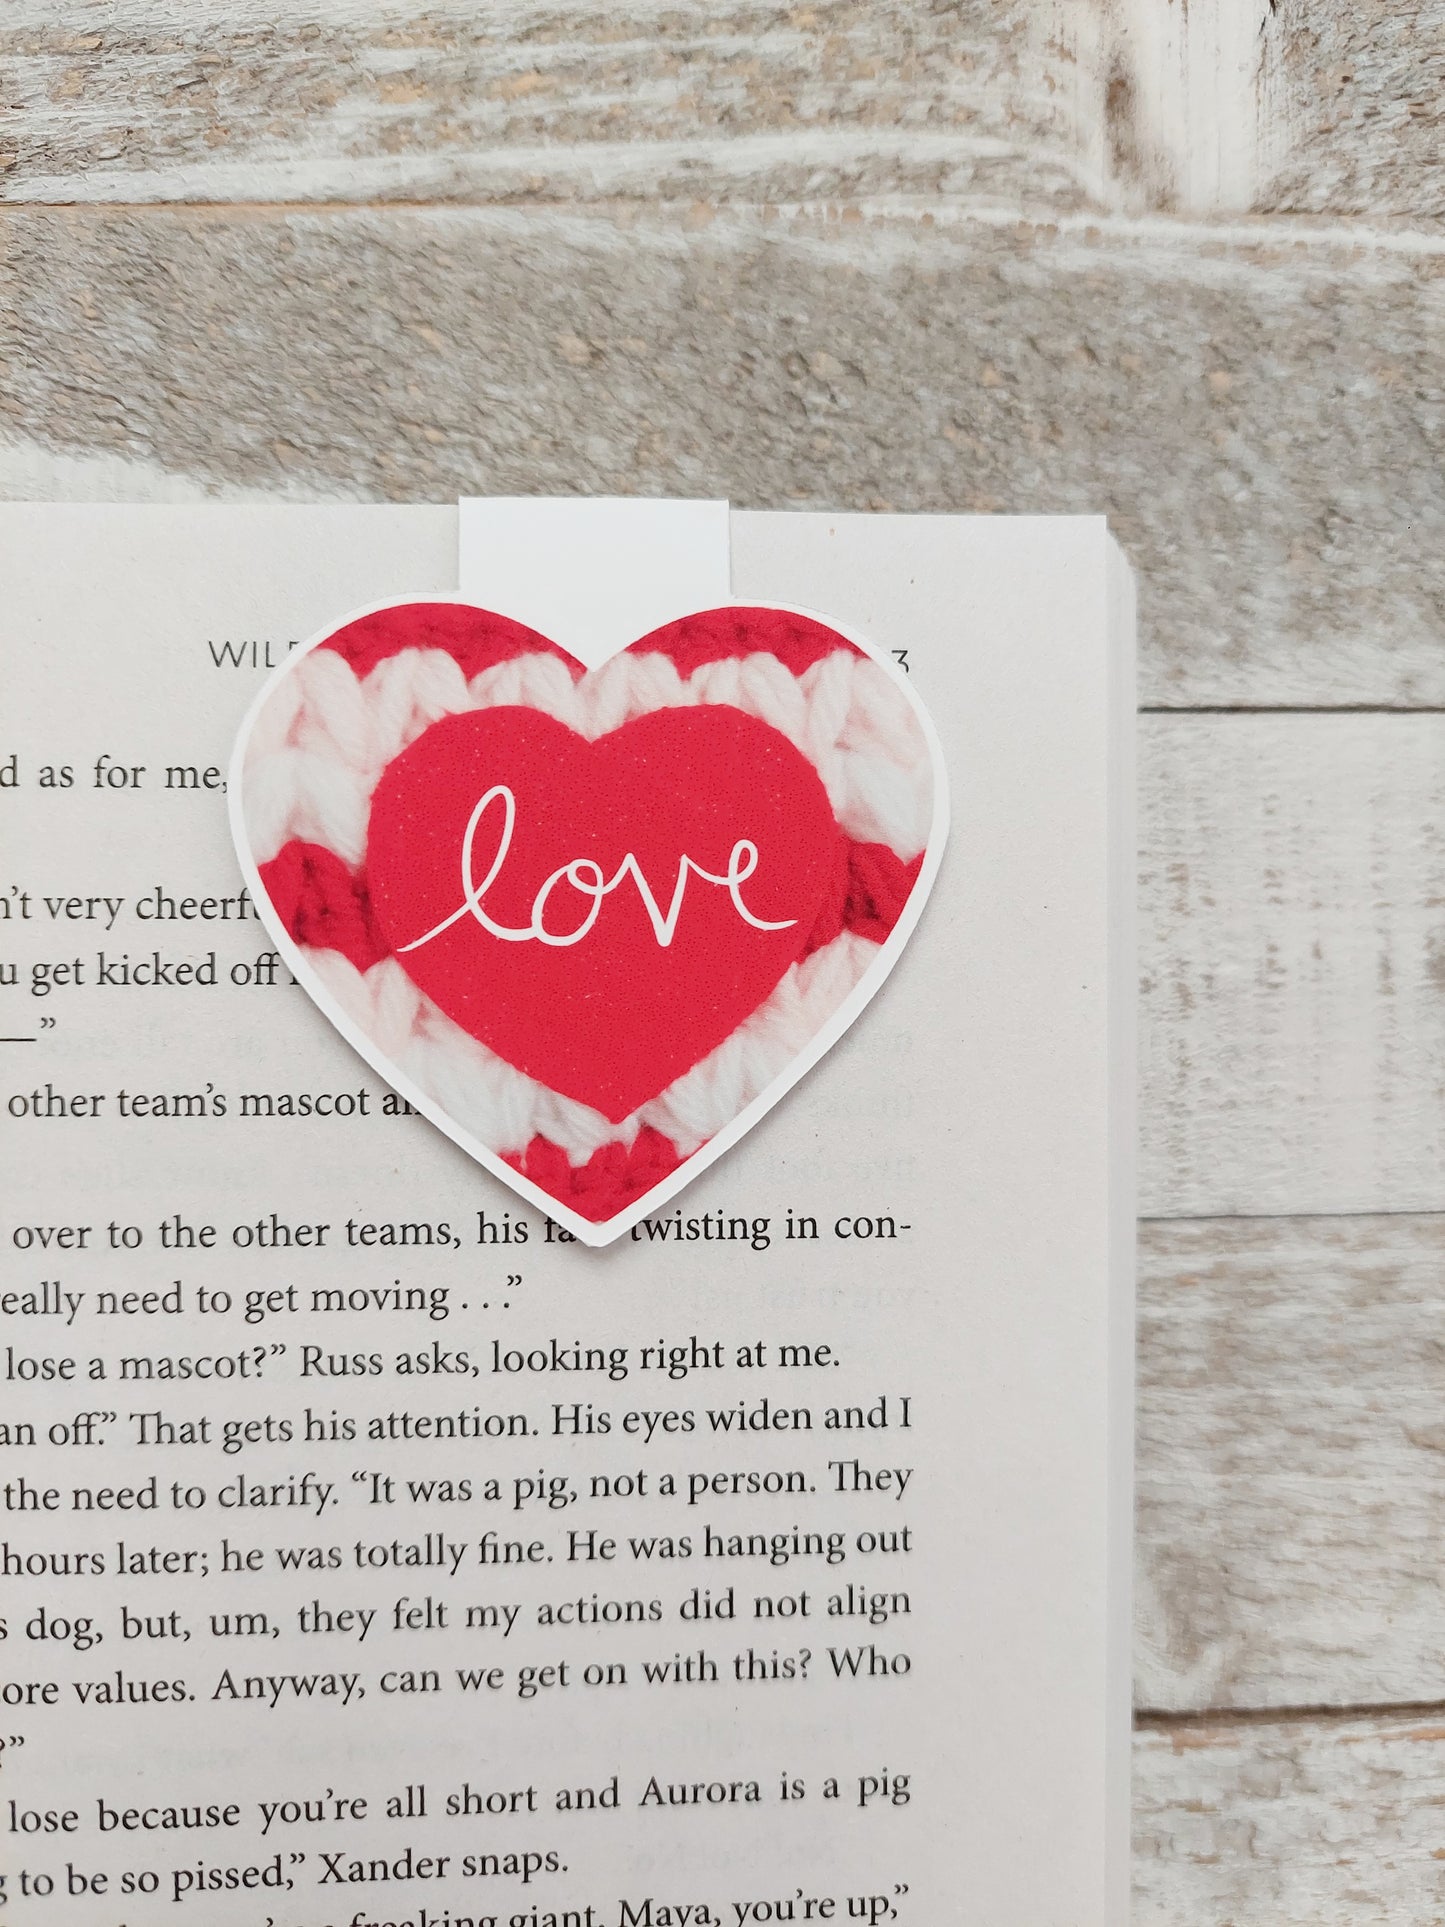 WIL
3
d as for me,
love
n't very cheerf
u get kicked off
—”
other team’s mascot
over to the other teams, his twisting in con-
eally need to get moving . . .”
lose a mascot?” Russ asks, looking right at me.
an off.” That gets his attention. His eyes widen and I
the need to clarify. “It was a pig, not a person. They
hours later; he was totally fine. He was hanging out
s dog, but, um, they felt my actions did not align
ore values. Anyway, can we get on with this? Who
?”
lose because you’re all short and Aurora is a pig
g to be so pissed,” Xander snaps.
freaking giant. Maya, you’re up,”